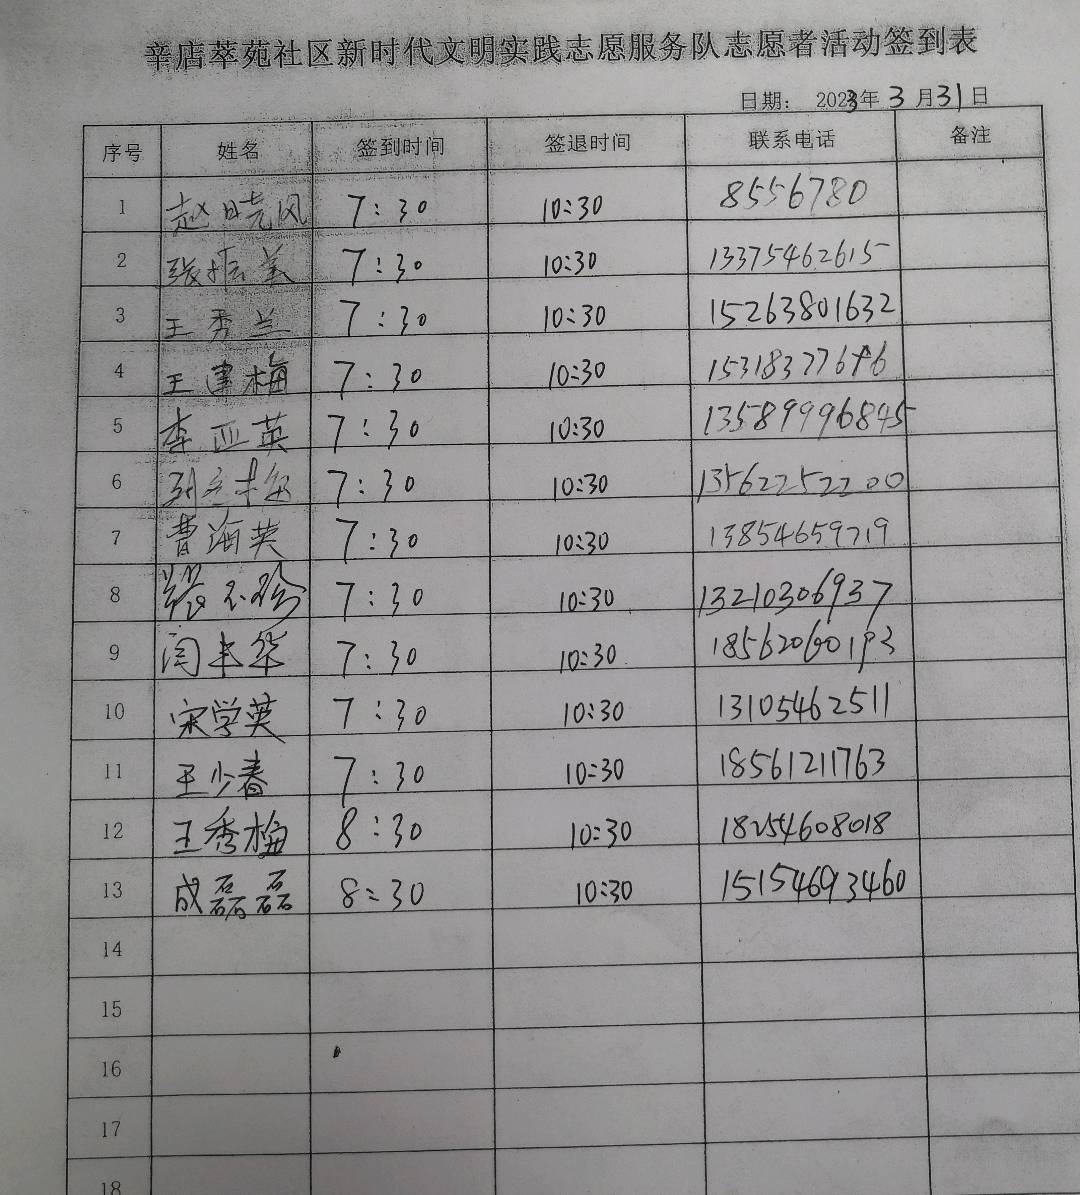 辛店萃苑社区新时代文明实践志愿服务队志愿者活动签到表
日期： 2023年 3 月 31 日
序号 姓名 签到时间 签退时间 联系电话 备注
1 赵晓风 7:30 10:30 8556780
2 张振美 7:30 10:30 13375462615
3 王秀兰 7:30 10:30 15263801632
4 王建梅 7:30 10:30
5 李亚英 7:30 10:30 13589996845
6 7:30 10:30 13562252200
7 曹海英 7:30 10:30 13854659719
8 7:30 10:30 13210306937
9 闫丰华 7:30 10:30
10 宋学英 7:30 10:30 13105462511
11 王少春 7:30 10:30 18561211763
12 王秀梅 8:30 10:30 18254608018
13 成磊磊 8:30 10:30 15154693460
14
15
16
17
18